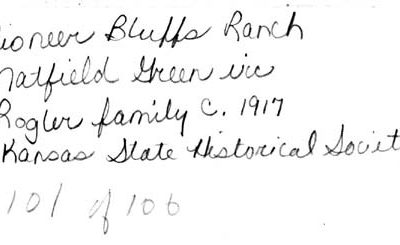 ioneer Bluffs Ranch
atfield Green vic
Rogler family c. 1917
Kansas State Historical Societ
101 of 106